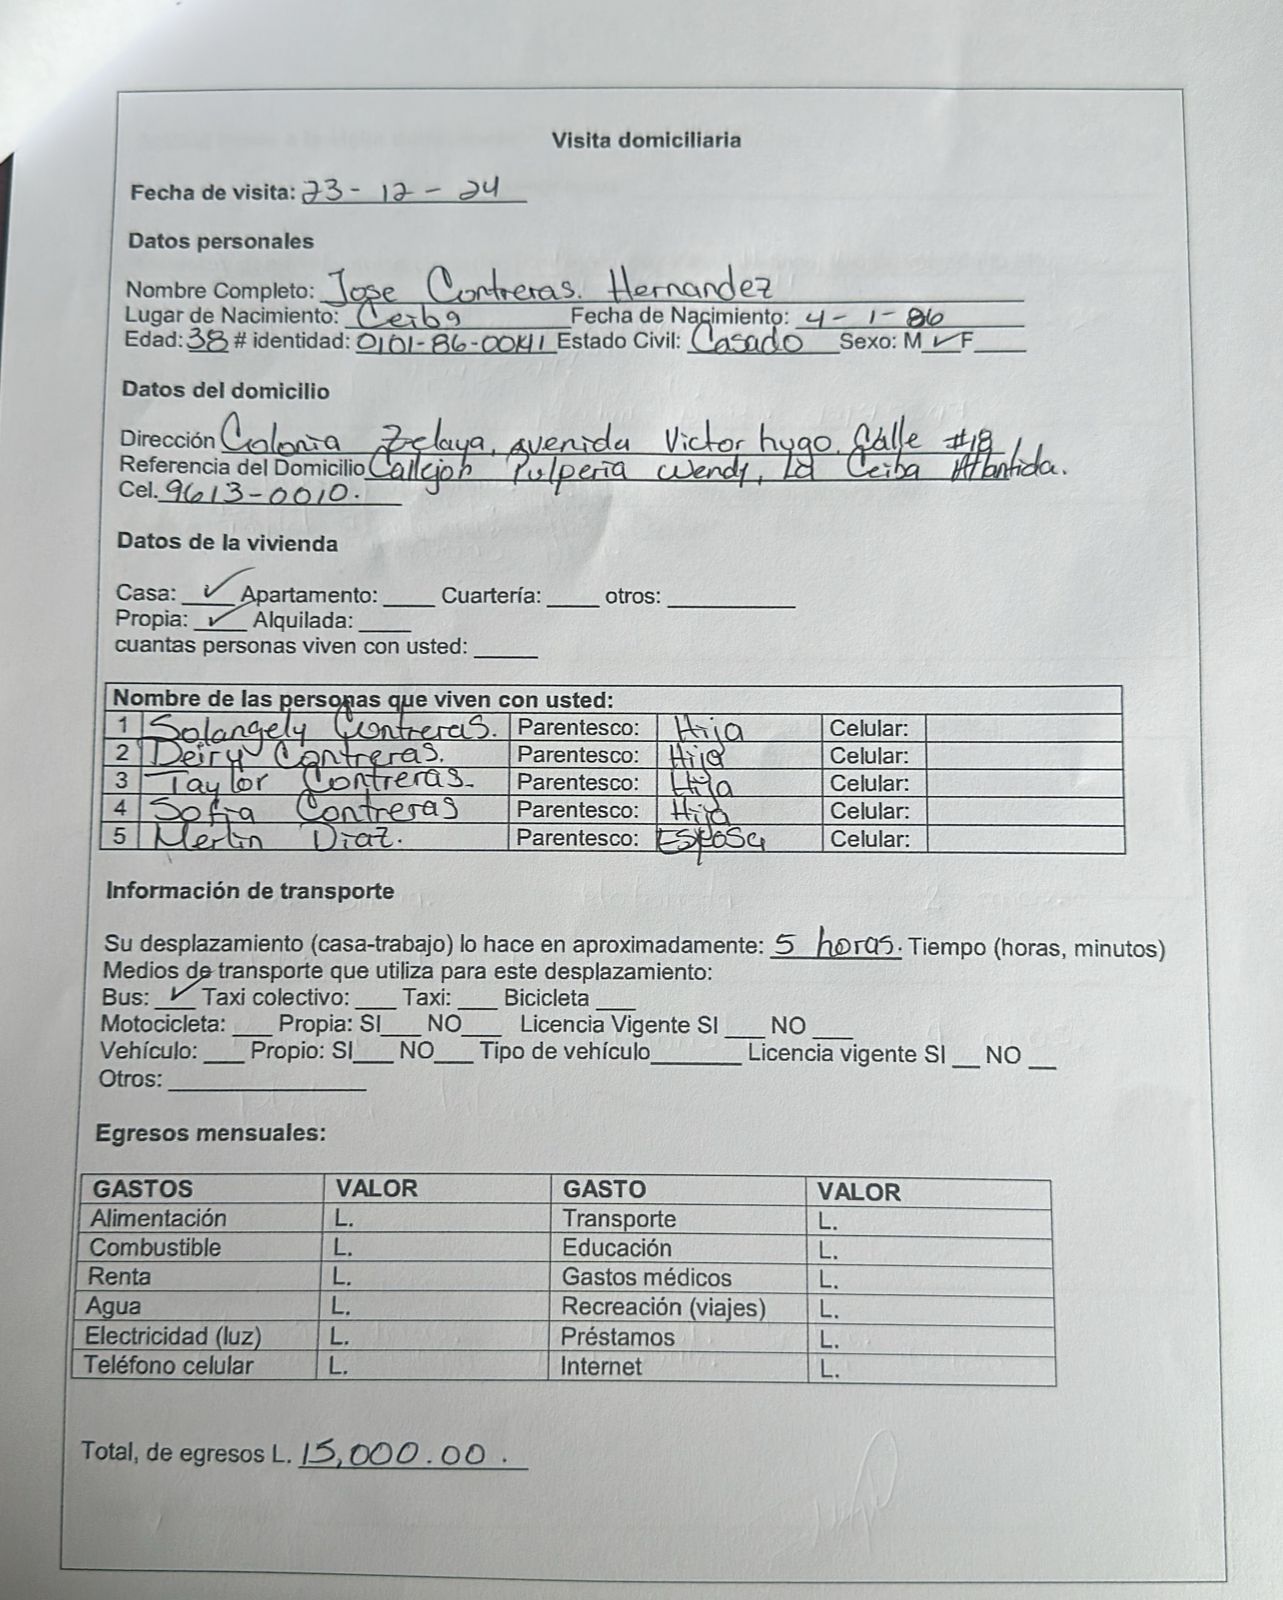 Visita domiciliaria
Fecha de visita: 23-12-24
Datos personales
Nombre Completo: Jose Contreras. Hernandez
Lugar de Nacimiento: Ceiba Fecha de Nacimiento: 4-1-86
Edad: 38 # identidad: 0101-86-00141 Estado Civil: Casado Sexo: M ✓ F____
Datos del domicilio
Dirección Colonia Zelaya, avenida Victor hugo. Calle #18
Referencia del Domicilio Callejon Pulperia Wendy, La Ceiba Atlantida.
Cel. 9613-0010.
Datos de la vivienda
Casa: ✓ Apartamento: ____ Cuartería: ____ otros: __________
Propia: ✓ Alquilada: ____
cuantas personas viven con usted: _____
Nombre de las personas que viven con usted:
1 Solangely Contreras. Parentesco: Hija Celular:
2 Deiry Contreras. Parentesco: Hija Celular:
3 Taylor Contreras. Parentesco: Hija Celular:
4 Sofia Contreras Parentesco: Hija Celular:
5 Merlin Diaz. Parentesco: Esposa Celular:
Información de transporte
Su desplazamiento (casa-trabajo) lo hace en aproximadamente: 5 horas. Tiempo (horas, minutos)
Medios de transporte que utiliza para este desplazamiento:
Bus: ✓ Taxi colectivo: ____ Taxi: ____ Bicicleta ____
Motocicleta: ____ Propia: SI____ NO____ Licencia Vigente SI ____ NO ____
Vehículo: ____ Propio: SI____ NO____ Tipo de vehículo________ Licencia vigente SI ___ NO ___
Otros: ________________
Egresos mensuales:
GASTOS VALOR GASTO VALOR
Alimentación L. Transporte L.
Combustible L. Educación L.
Renta L. Gastos médicos L.
Agua L. Recreación (viajes) L.
Electricidad (luz) L. Préstamos L.
Teléfono celular L. Internet L.
Total, de egresos L. 15,000.00.